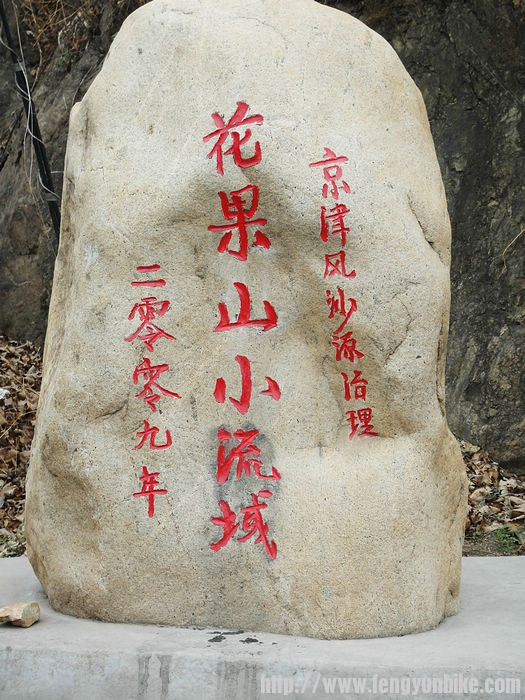 京津风沙源治理
花果山小流域
二零零九年
http://www.fengyunbike.com